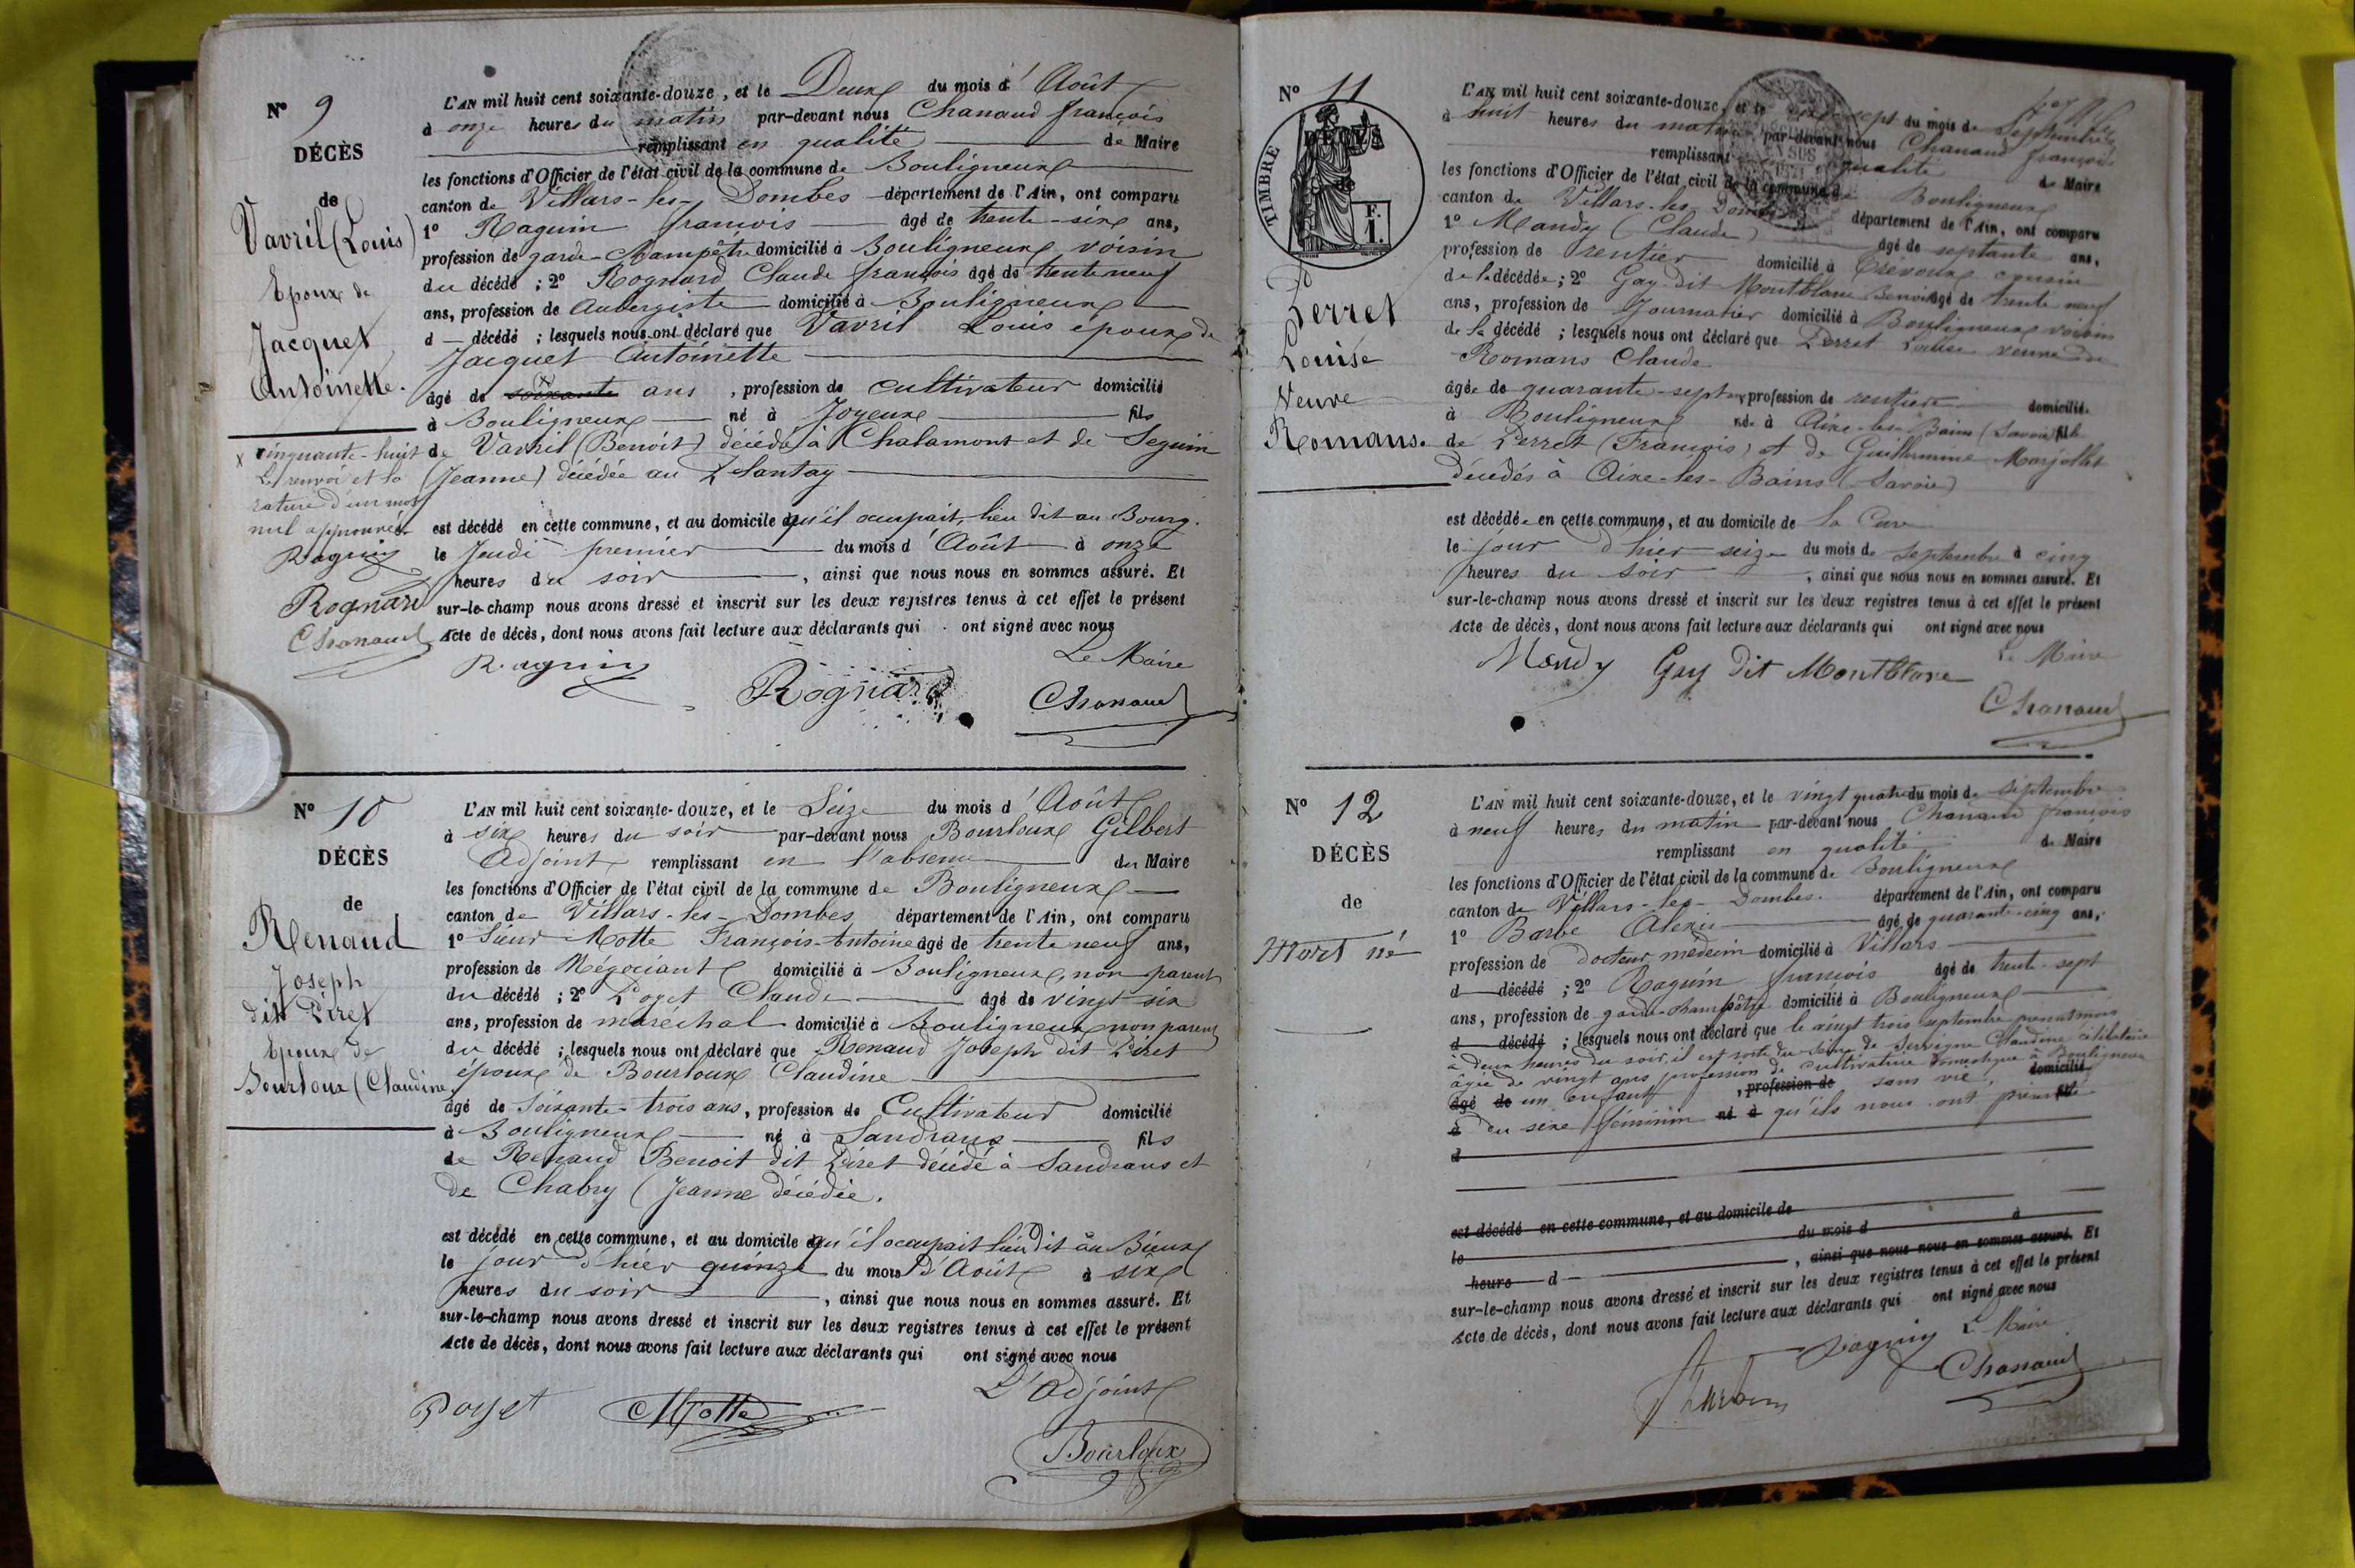 N° 9
DÉCÈS
de
Vavril (Louis)
Epoux de
Jacquet
Antoinette.
x cinquante-huit
Le renvoi et la
rature d'un mot
nul approuvés
Raguin
Rognard
Chanaud
L'AN mil huit cent soixante-douze, et le Deux du mois d'Août
à onze heures du matin par-devant nous Chanaud françois
remplissant en qualité de Maire
les fonctions d'Officier de l'état civil de la commune de Bouligneux
canton de Villars-les-Dombes département de l'Ain, ont comparu
1° Raguin françois âgé de trente-six ans,
profession de garde-Champêtre domicilié à Bouligneux voisin
du décédé ; 2° Rognard Claude françois âgé de trente neuf
ans, profession de Aubergiste domicilié à Bouligneux
d décédé ; lesquels nous ont déclaré que Vavril Louis époux de
Jacquet Antoinette
âgé de soixante x ans, profession de cultivateur domicilié
à Bouligneux né à Joyeux fils
de Vavril (Benoit) décédé à Chalamont et de Seguin
(Jeanne) décédée au Plantay
est décédé en cette commune, et au domicile qu'il occupait, lieu dit au Bourg.
le Jeudi premier du mois d'Août à onze
heures du soir, ainsi que nous nous en sommes assuré. Et
sur-le-champ nous avons dressé et inscrit sur les deux registres tenus à cet effet le présent
Acte de décès, dont nous avons fait lecture aux déclarants qui ont signé avec nous
Le Maire
Raguin Rognard Chanaud
N° 10
DÉCÈS
de
Renaud
Joseph
dit Piret
Epoux de
Bourloux (Claudine
L'AN mil huit cent soixante-douze, et le Seize du mois d'Août
à six heures du soir par-devant nous Bourloux Gilbert
Adjoint remplissant en l'absence du Maire
les fonctions d'Officier de l'état civil de la commune de Bouligneux
canton de Villars-les-Dombes département de l'Ain, ont comparu
1° Sieur Motte François-Antoine âgé de trente neuf ans,
profession de Négociant domicilié à Bouligneux, non parent
du décédé ; 2° Poget Claude âgé de vingt six
ans, profession de maréchal domicilié à Bouligneux non parent
du décédé ; lesquels nous ont déclaré que Renaud Joseph dit Piret
époux de Bourloux Claudine
âgé de Soixante-trois ans, profession de Cultivateur domicilié
à Bouligneux né à Sandrans fils
de Renaud Benoit dit Piret décédé à Sandrans et
de Chabry (Jeanne décédée.
est décédé en cette commune, et au domicile qu'il occupait lieu dit au Bieux
le jour d'hier quinze du mois d'Août à six
heures du soir, ainsi que nous nous en sommes assuré. Et
sur-le-champ nous avons dressé et inscrit sur les deux registres tenus à cet effet le présent
Acte de décès, dont nous avons fait lecture aux déclarants qui ont signé avec nous
L'Adjoint
Poget Motte
Bourloux
N° 11
TIMBRE
F.
1.
Perret
Louise
Veuve
Romans.
L'AN mil huit cent soixante-douze, et le dix sept du mois de Septembre
à huit heures du matin par-devant nous Chanaud françois
remplissant en qualité de Maire
les fonctions d'Officier de l'état civil de la commune de Bouligneux
canton de Villars-les-Dombes département de l'Ain, ont comparu
1° Mandy (Claude) âgé de septante ans,
profession de rentier domicilié à Trévoux cousin
de la décédée ; 2° Gay dit Montblanc Benoit âgé de trente neuf
ans, profession de Journalier domicilié à Bouligneux voisin
de la décédé ; lesquels nous ont déclaré que Perret Louise veuve de
Romans Claude
âgée de quarante-sept ans profession de rentière domicilié
à Bouligneux née à Aix-les-Bains (Savoie) fille
de Perret (François) et de Guillermine Marjollet
décédés à Aix-les-Bains (Savoie)
est décédée en cette commune, et au domicile de la Cure
le jour d'hier seize du mois de septembre à cinq
heures du soir, ainsi que nous nous en sommes assuré. Et
sur-le-champ nous avons dressé et inscrit sur les deux registres tenus à cet effet le présent
Acte de décès, dont nous avons fait lecture aux déclarants qui ont signé avec nous
Le Maire
Mandy Gay dit Montblanc
Chanaud
N° 12
DÉCÈS
de
Mort né
L'AN mil huit cent soixante-douze, et le vingt quatre du mois de septembre
à neuf heures du matin par-devant nous Chanaud françois
remplissant en qualité de Maire
les fonctions d'Officier de l'état civil de la commune de Bouligneux
canton de Villars-les-Dombes. département de l'Ain, ont comparu
1° Barbe Alexis âgé de quarante-cinq ans,
profession de docteur médecin domicilié à Villars
d décédé ; 2° Raguin françois âgé de trente-sept
ans, profession de garde-champêtre domicilié à Bouligneux
d décédé ; lesquels nous ont déclaré que le vingt trois septembre présent mois
à deux heures du soir, il est sorti du sein de Servigne Claudine célibataire
âgée de vingt ans profession de cultivatrice domestique à Bouligneux
âgé de un enfant, profession de sans vie, domicilié
à du sexe féminin né à qu'ils nous ont présenté fil
d
est décédé en cette commune, et au domicile de
le du mois d à
heure d, ainsi que nous nous en sommes assuré. Et
sur-le-champ nous avons dressé et inscrit sur les deux registres tenus à cet effet le présent
Acte de décès, dont nous avons fait lecture aux déclarants qui ont signé avec nous
Raguin Le Maire
Chanaud